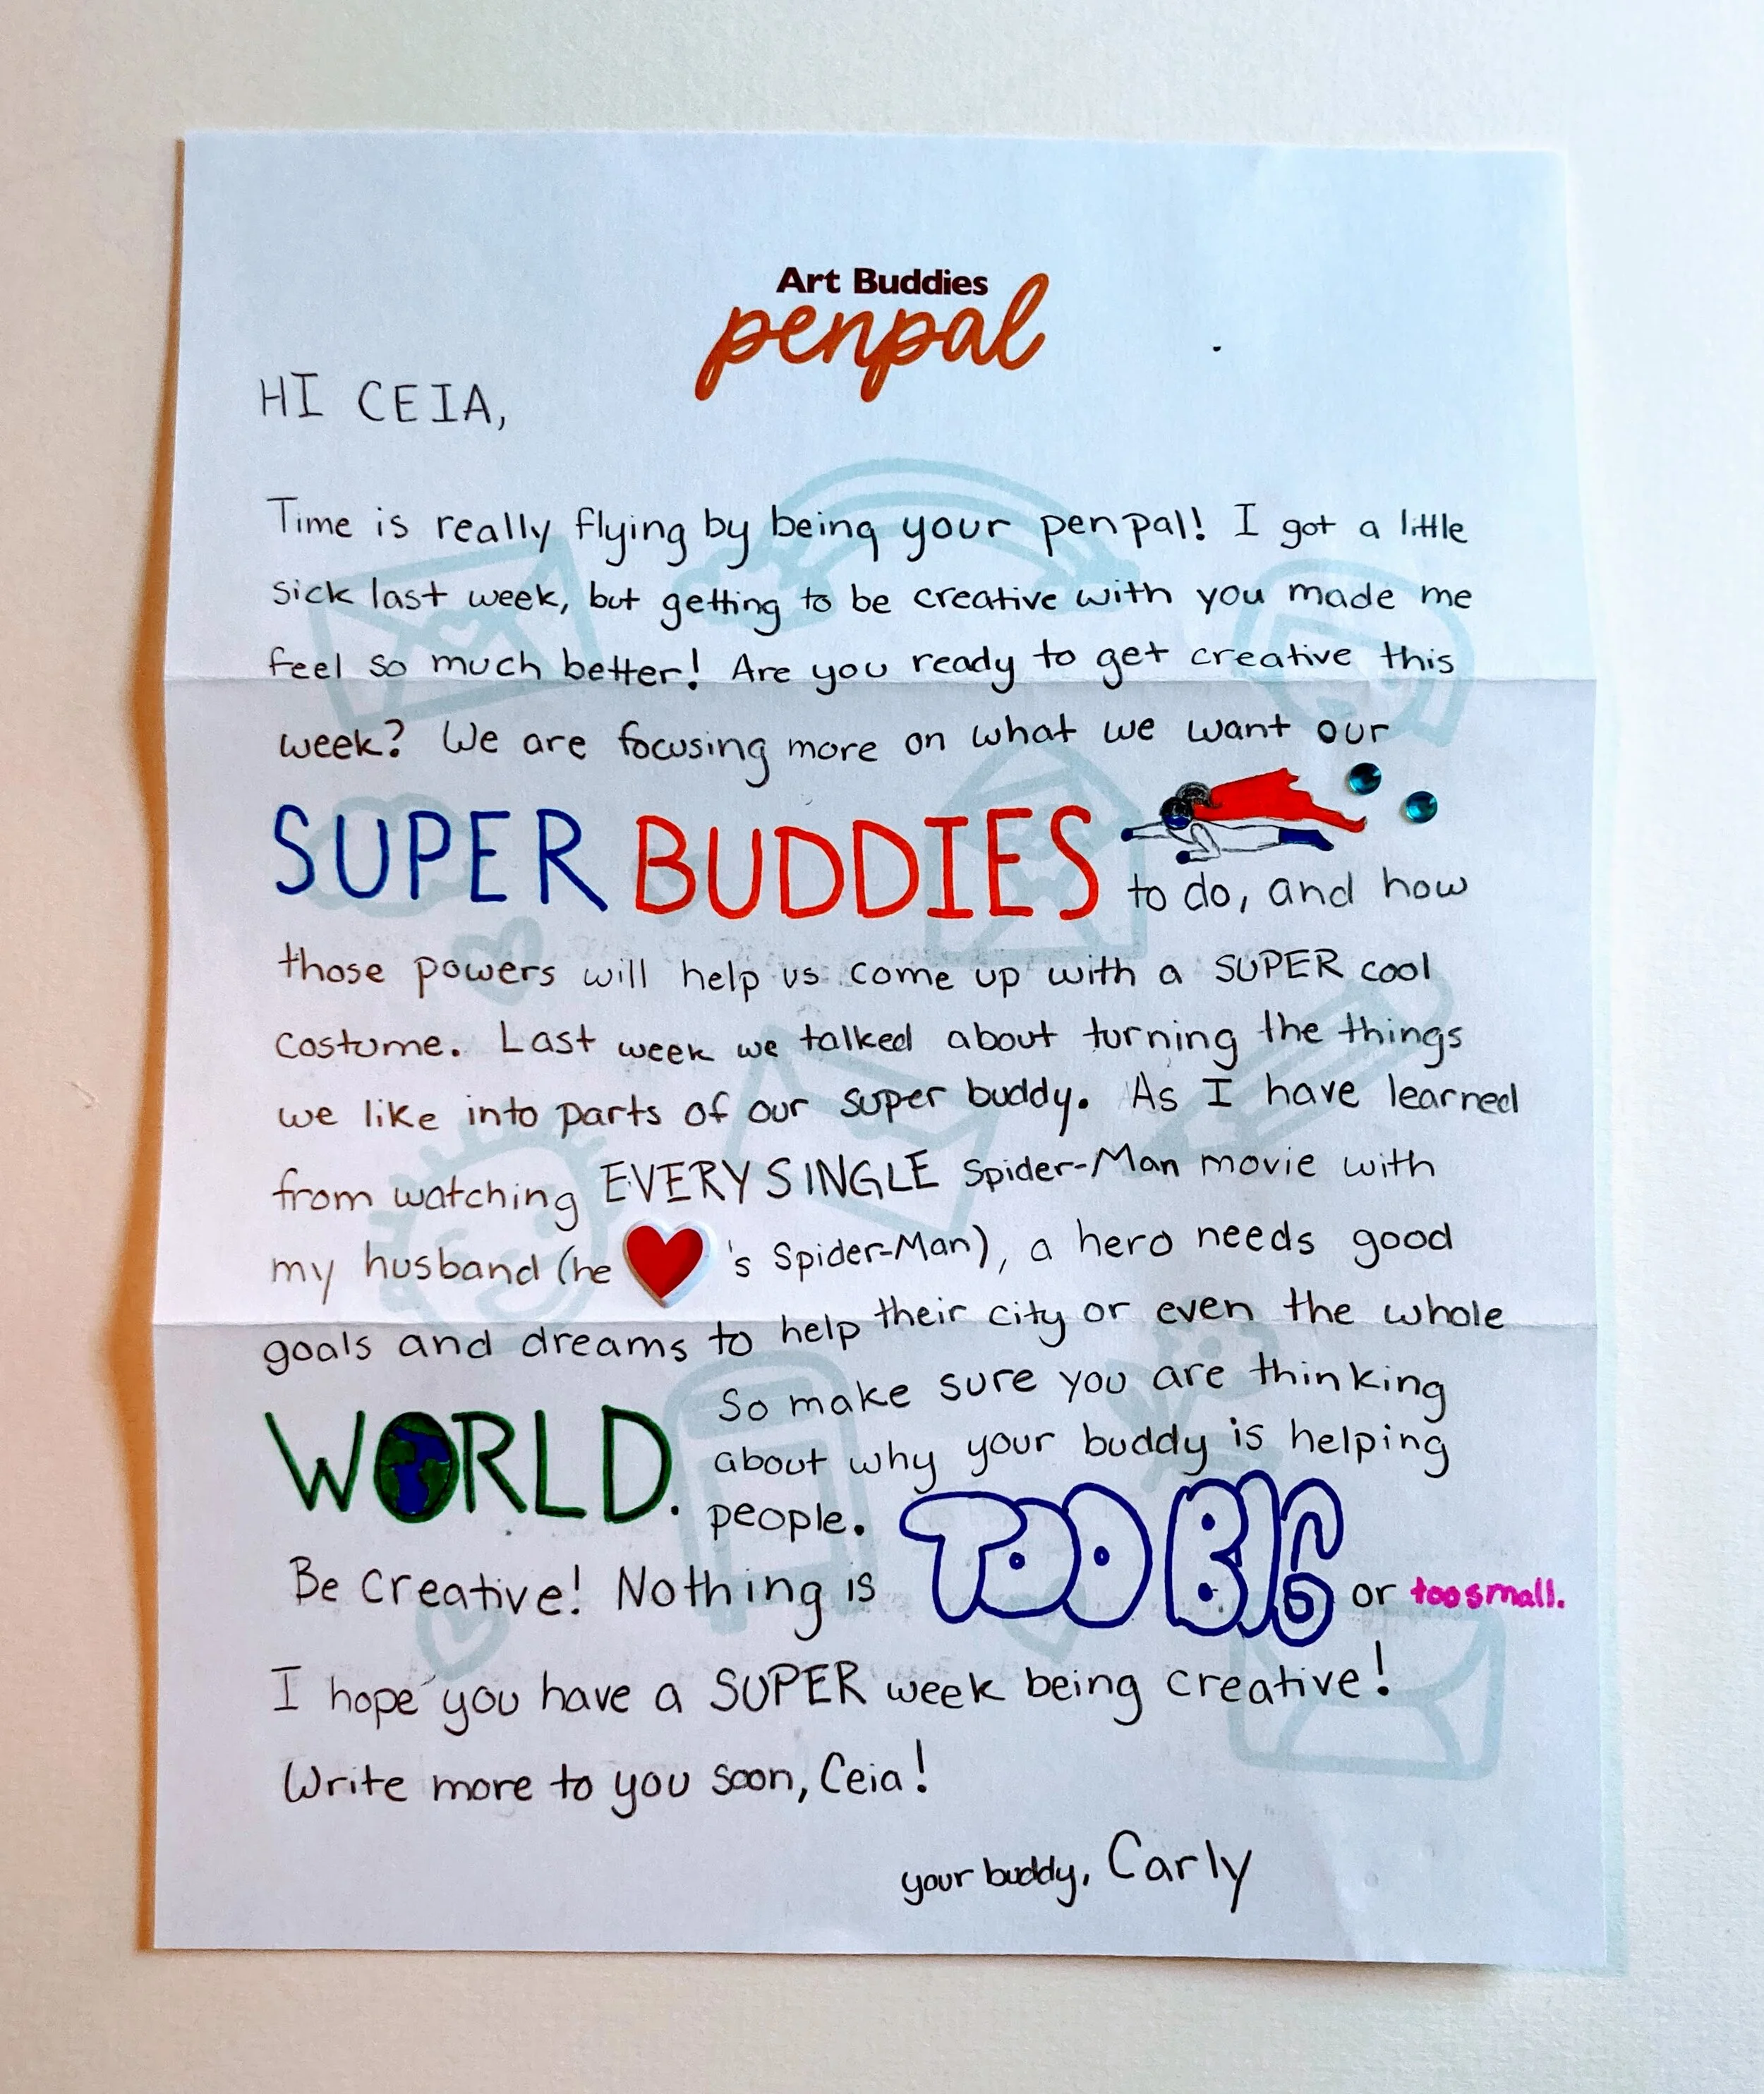 Art Buddies
penpal
HI CEIA,
Time is really flying by being your penpal! I got a little
sick last week, but getting to be creative with you made me
feel so much better! Are you ready to get creative this
week? We are focusing more on what we want our
SUPER BUDDIES to do, and how
those powers will help us come up with a SUPER cool
costume. Last week we talked about turning the things
we like into parts of our super buddy. As I have learned
from watching EVERY SINGLE Spider-Man movie with
my husband (he ❤️'s Spider-Man), a hero needs good
goals and dreams to help their city or even the whole
WORLD. So make sure you are thinking
about why your buddy is helping
people.
Be creative! Nothing is TOO BIG or too small.
I hope you have a SUPER week being creative!
Write more to you soon, Ceia!
your buddy, Carly